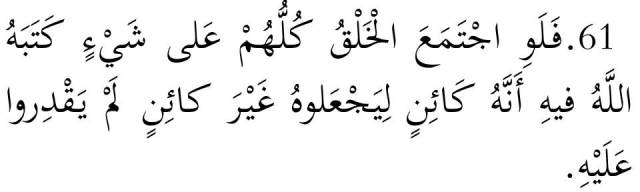 61.فَلَوِ اجْتَمَعَ الْخَلْقُ كُلُّهُمْ عَلى شَيْءٍ كَتَبَهُ
اللَّهُ فيهِ أَنَّهُ كَائِنٍ لِيَجْعَلوهُ غَيْرَ كائِنٍ لَمْ يَقْدِروا
عَلَيْهِ.